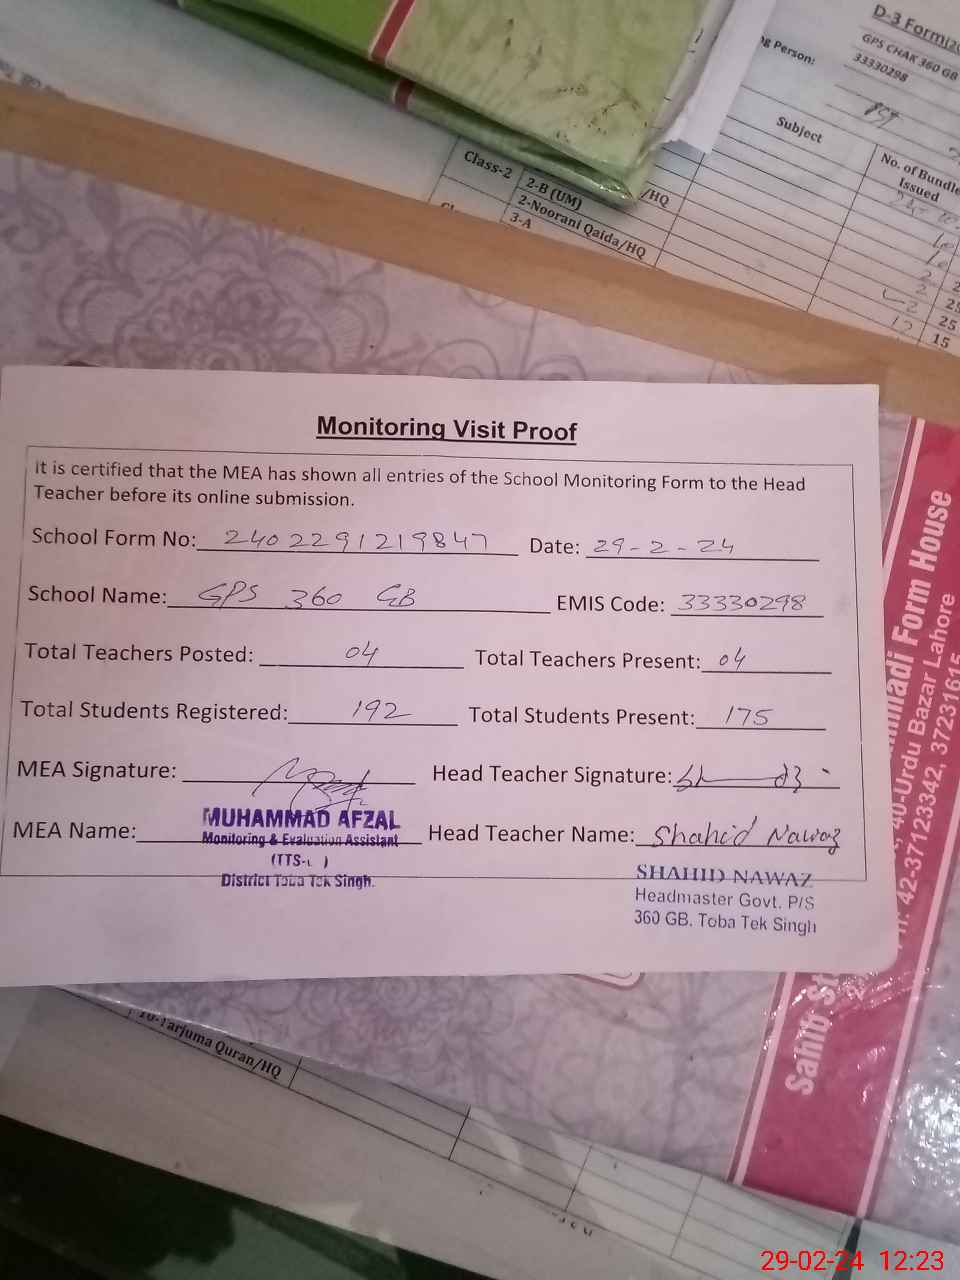 D-3 Form(2
ng Person:
GPS CHAK 360 GB
33330298
Subject
No. of Bundle
Issued
Class-2
2-B (UM)
/HQ
2-Noorani Qaida/HQ
3-A
25
15
Monitoring Visit Proof
It is certified that the MEA has shown all entries of the School Monitoring Form to the Head
Teacher before its online submission.
School Form No: 2402291219847 Date: 29-2-24
School Name: GPS 360 GB EMIS Code: 33330298
Total Teachers Posted: 04 Total Teachers Present: 04
Total Students Registered: 192 Total Students Present: 175
MEA Signature: Head Teacher Signature:
MEA Name: Head Teacher Name: Shahid Nawaz
MUHAMMAD AFZAL
Monitoring & Evaluation Assistant
District Toba Tek Singh.
SHAHID NAWAZ
Headmaster Govt. P/S
360 GB. Toba Tek Singh
madi Form House
40-Urdu Bazar Lahore
42-37123342, 37231615
Sahib St
10-Tarjuma Quran/HQ
29-02-24 12:23